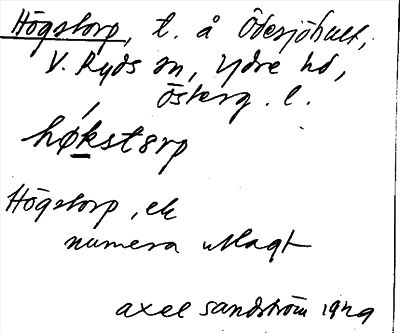 Högstorp, t. å Ödesjöhult,
V. Ryds sn, Ydre hd,
Österg. l.
hǿkstorp
Högstorp, ek
numera utlagt
Axel Sandström 1929